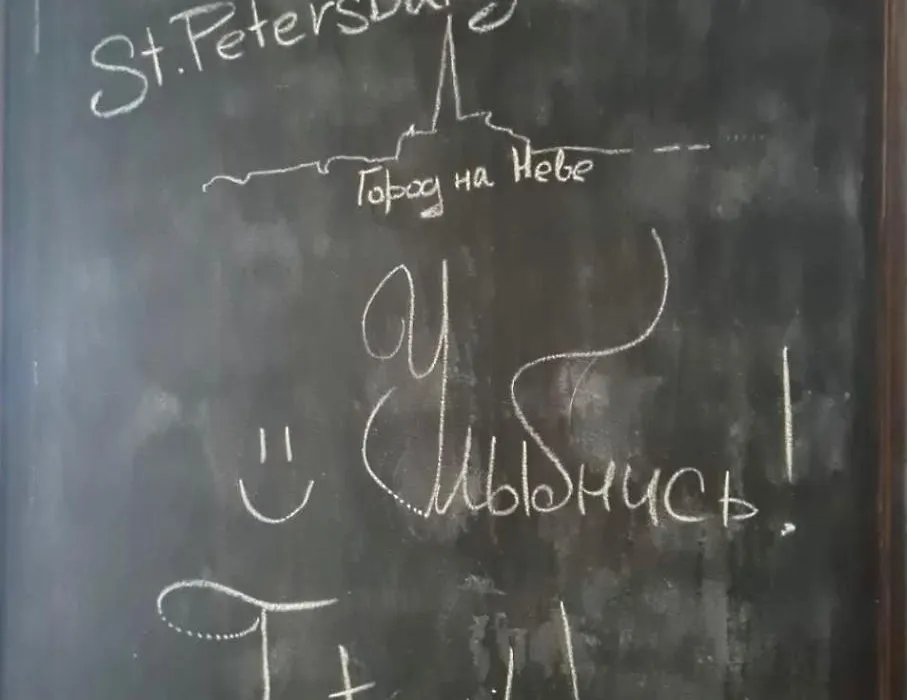 St.Petersburg
Город на Неве
Улыбнись!